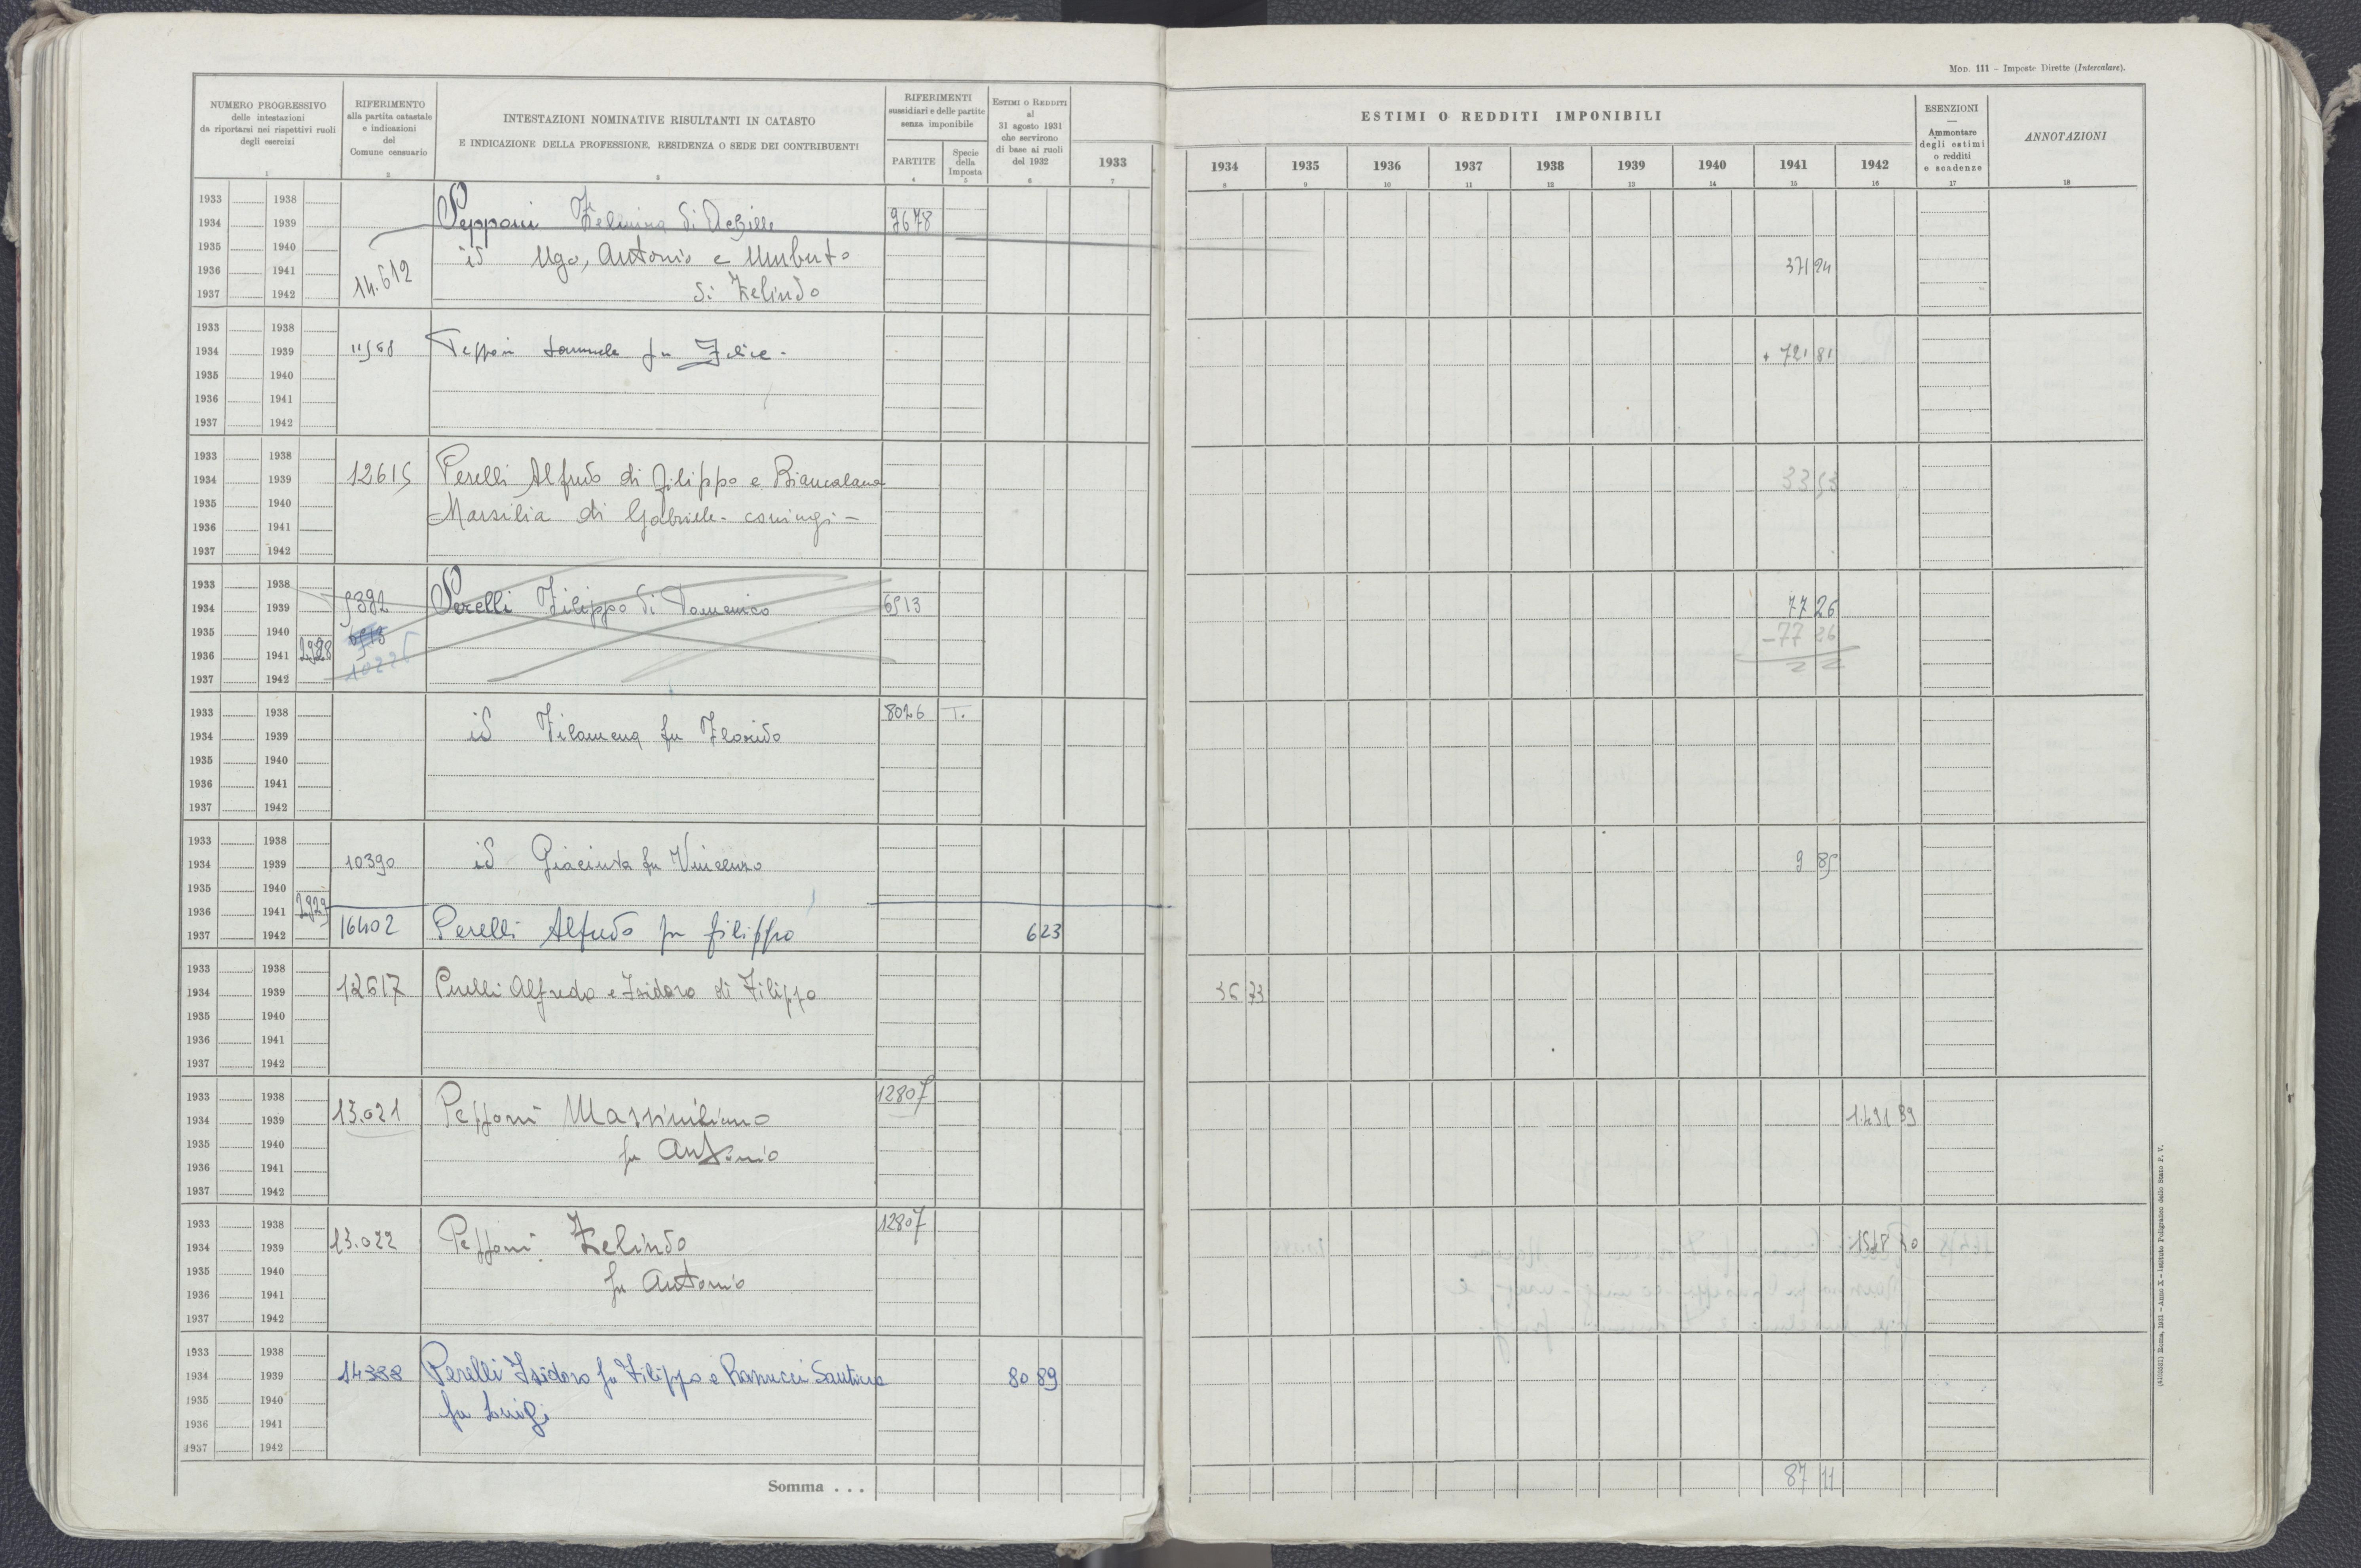 MOD. 111 – Imposte Dirette (Intercalare).
NUMERO PROGRESSIVO
delle intestazioni
da riportarsi nei rispettivi ruoli
degli esercizi
1
RIFERIMENTO
alla partita catastale
e indicazioni
del
Comune censuario
2
INTESTAZIONI NOMINATIVE RISULTANTI IN CATASTO
E INDICAZIONE DELLA PROFESSIONE, RESIDENZA O SEDE DEI CONTRIBUENTI
3
RIFERIMENTI
sussidiari e delle partite
senza imponibile
PARTITE
4
Specie
della
Imposta
5
ESTIMI O REDDITI
al
31 agosto 1931
che servirono
di base ai ruoli
del 1932
6
1933
7
ESTIMI O REDDITI IMPONIBILI
1934 1935 1936 1937 1938 1939 1940 1941 1942
8 9 10 11 12 13 14 15 16
ESENZIONI
—
Ammontare
degli estimi
o redditi
e scadenze
17
ANNOTAZIONI
18
1933 1938
1934 1939 Pepponi Zelmira di Achille 9678
1935 1940 id Ugo, Antonio e Umberto
1936 1941 14.612 371 24
1937 1942 di Zelindo
1933 1938
1934 1939 11568 Pepponi fu Felice - + 721 81
1935 1940
1936 1941
1937 1942
1933 1938
1934 1939 12615 Perelli Alfredo di Filippo e Biancalana 33 53
1935 1940 Marsilia di Gabriele - coniugi -
1936 1941
1937 1942
1933 1938
1934 1939 9392 Perelli Filippo di Domenico 6913 77 26
1935 1940 - 77 26
1936 1941 2928 10226
1937 1942
1933 1938 8026 T.
1934 1939 id Filomena fu Florido
1935 1940
1936 1941
1937 1942
1933 1938
1934 1939 10390 id Giacinta fu Vincenzo 9 85
1935 1940
1936 1941 2929
1937 1942 16402 Perelli Alfredo fu Filippo 6 23
1933 1938
1934 1939 12617 Perelli Alfredo e Isidoro di Filippo 36 73
1935 1940
1936 1941
1937 1942
1933 1938 12807
1934 1939 13.021 Pepponi Massimiliano 1.491 89
1935 1940 fu Antonio
1936 1941
1937 1942
1933 1938 12807
1934 1939 13.022 Pepponi Zelindo 1548 70
1935 1940 fu Antonio
1936 1941
1937 1942
1933 1938
1934 1939 14388 Perelli Isidoro fu Filippo e Ranucci Santina 80 89
1935 1940 fu Luigi
1936 1941
1937 1942
Somma . . . 87 11
Roma, 1931 – Anno X – Istituto Poligrafico dello Stato P. V.